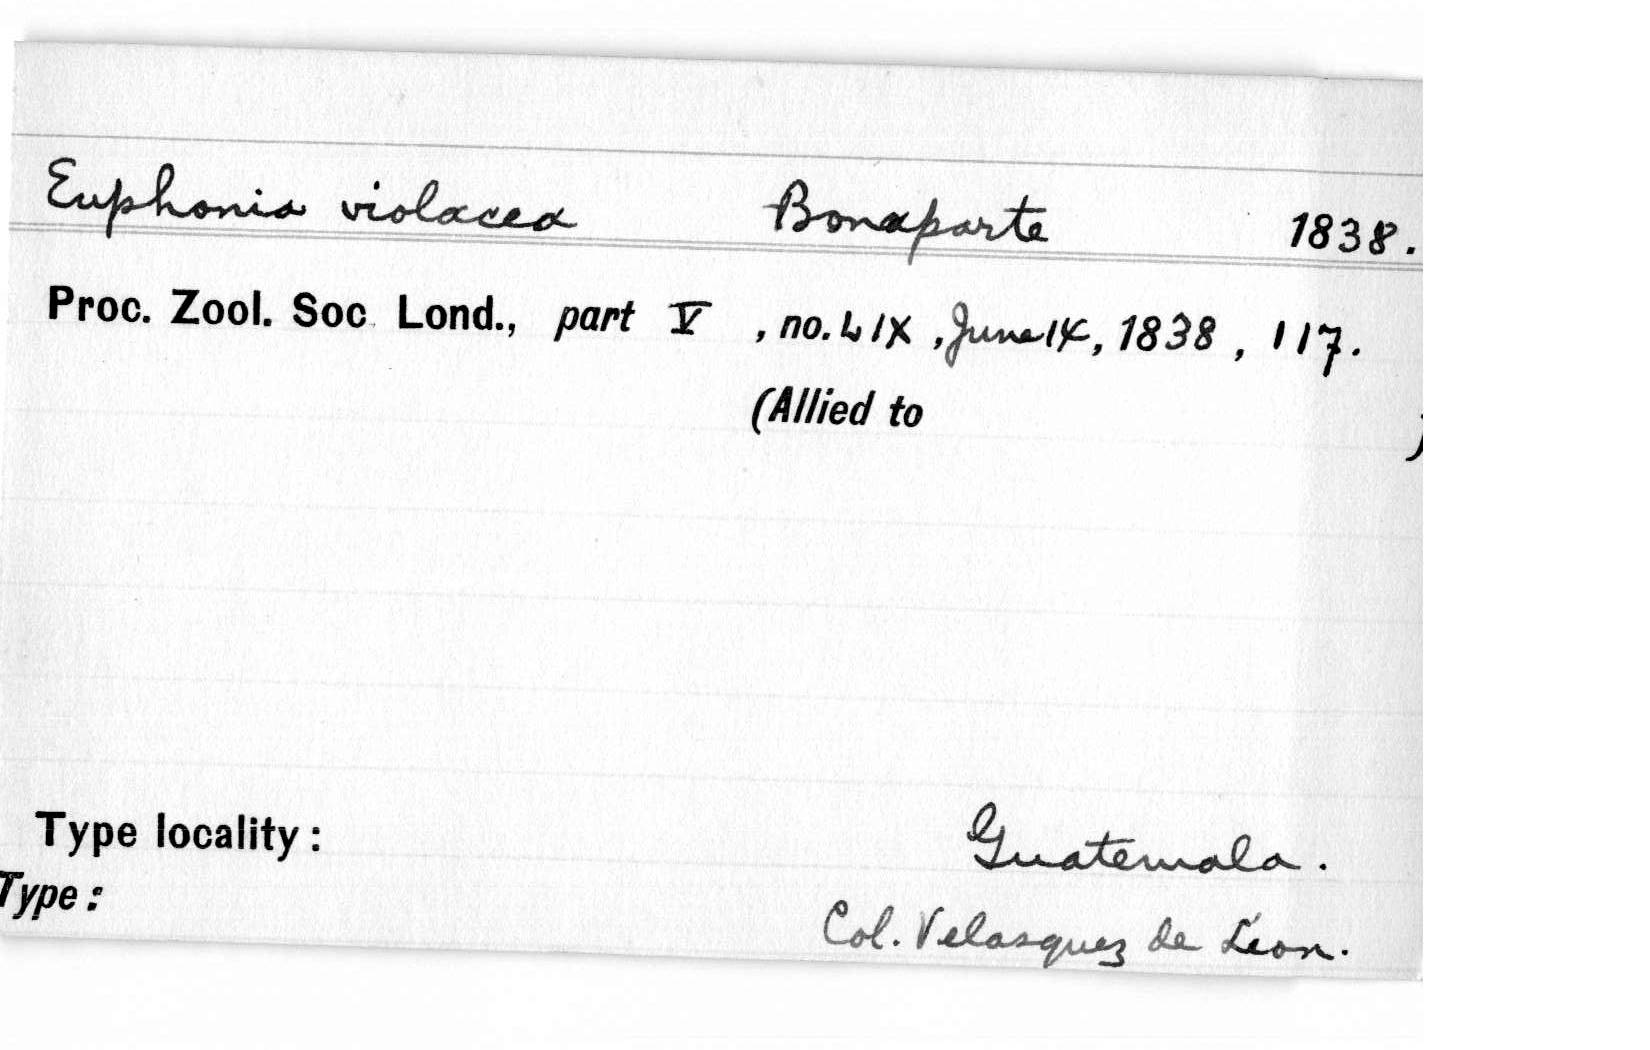 Euphonia violacea Bonaparte 1838.
Proc. Zool. Soc. Lond., part V, no. LIX, June 14, 1838, 117.
(Allied to )
Type locality: Guatemala.
Type: Col. Velasquez de Leon.